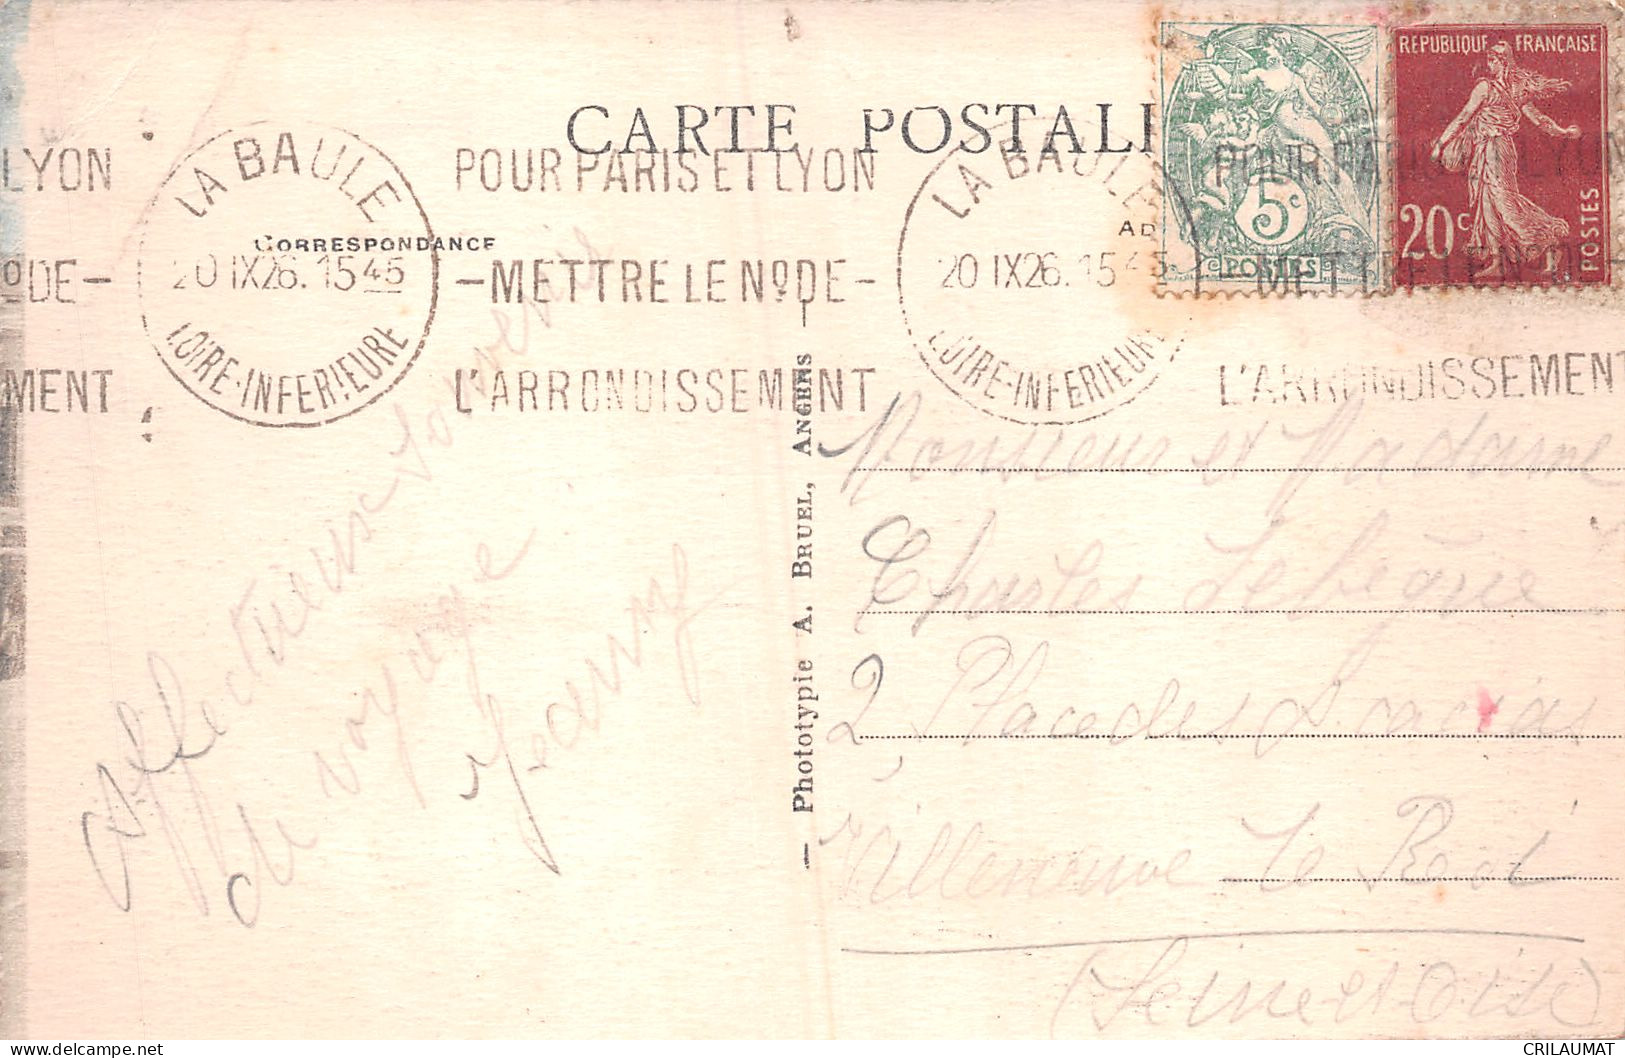 CARTE POSTALE
CORRESPONDANCE
LYON
Nº DE -
MENT
LA BAULE
20 IX 26. 15 45
LOIRE-INFERIEURE
POUR PARIS ET LYON
- METTRE LE Nº DE -
L'ARRONDISSEMENT
LA BAULE
20 IX 26. 15 45
LOIRE-INFERIEURE
POUR PARIS ET LYON
METTRE LE Nº DE -
L'ARRONDISSEMENT
AD
5c
POSTES
REPUBLIQUE FRANÇAISE
20c
POSTES
Affectueux souvenir
de voyage
— Phototypie A. BRUEL, ANGERS —
Monsieur et Madame
Charles Lebègue
2 Place des Acacias
Villeneuve Le Roi
(Seine et Oise)
delcampe.net
CRILAUMAT